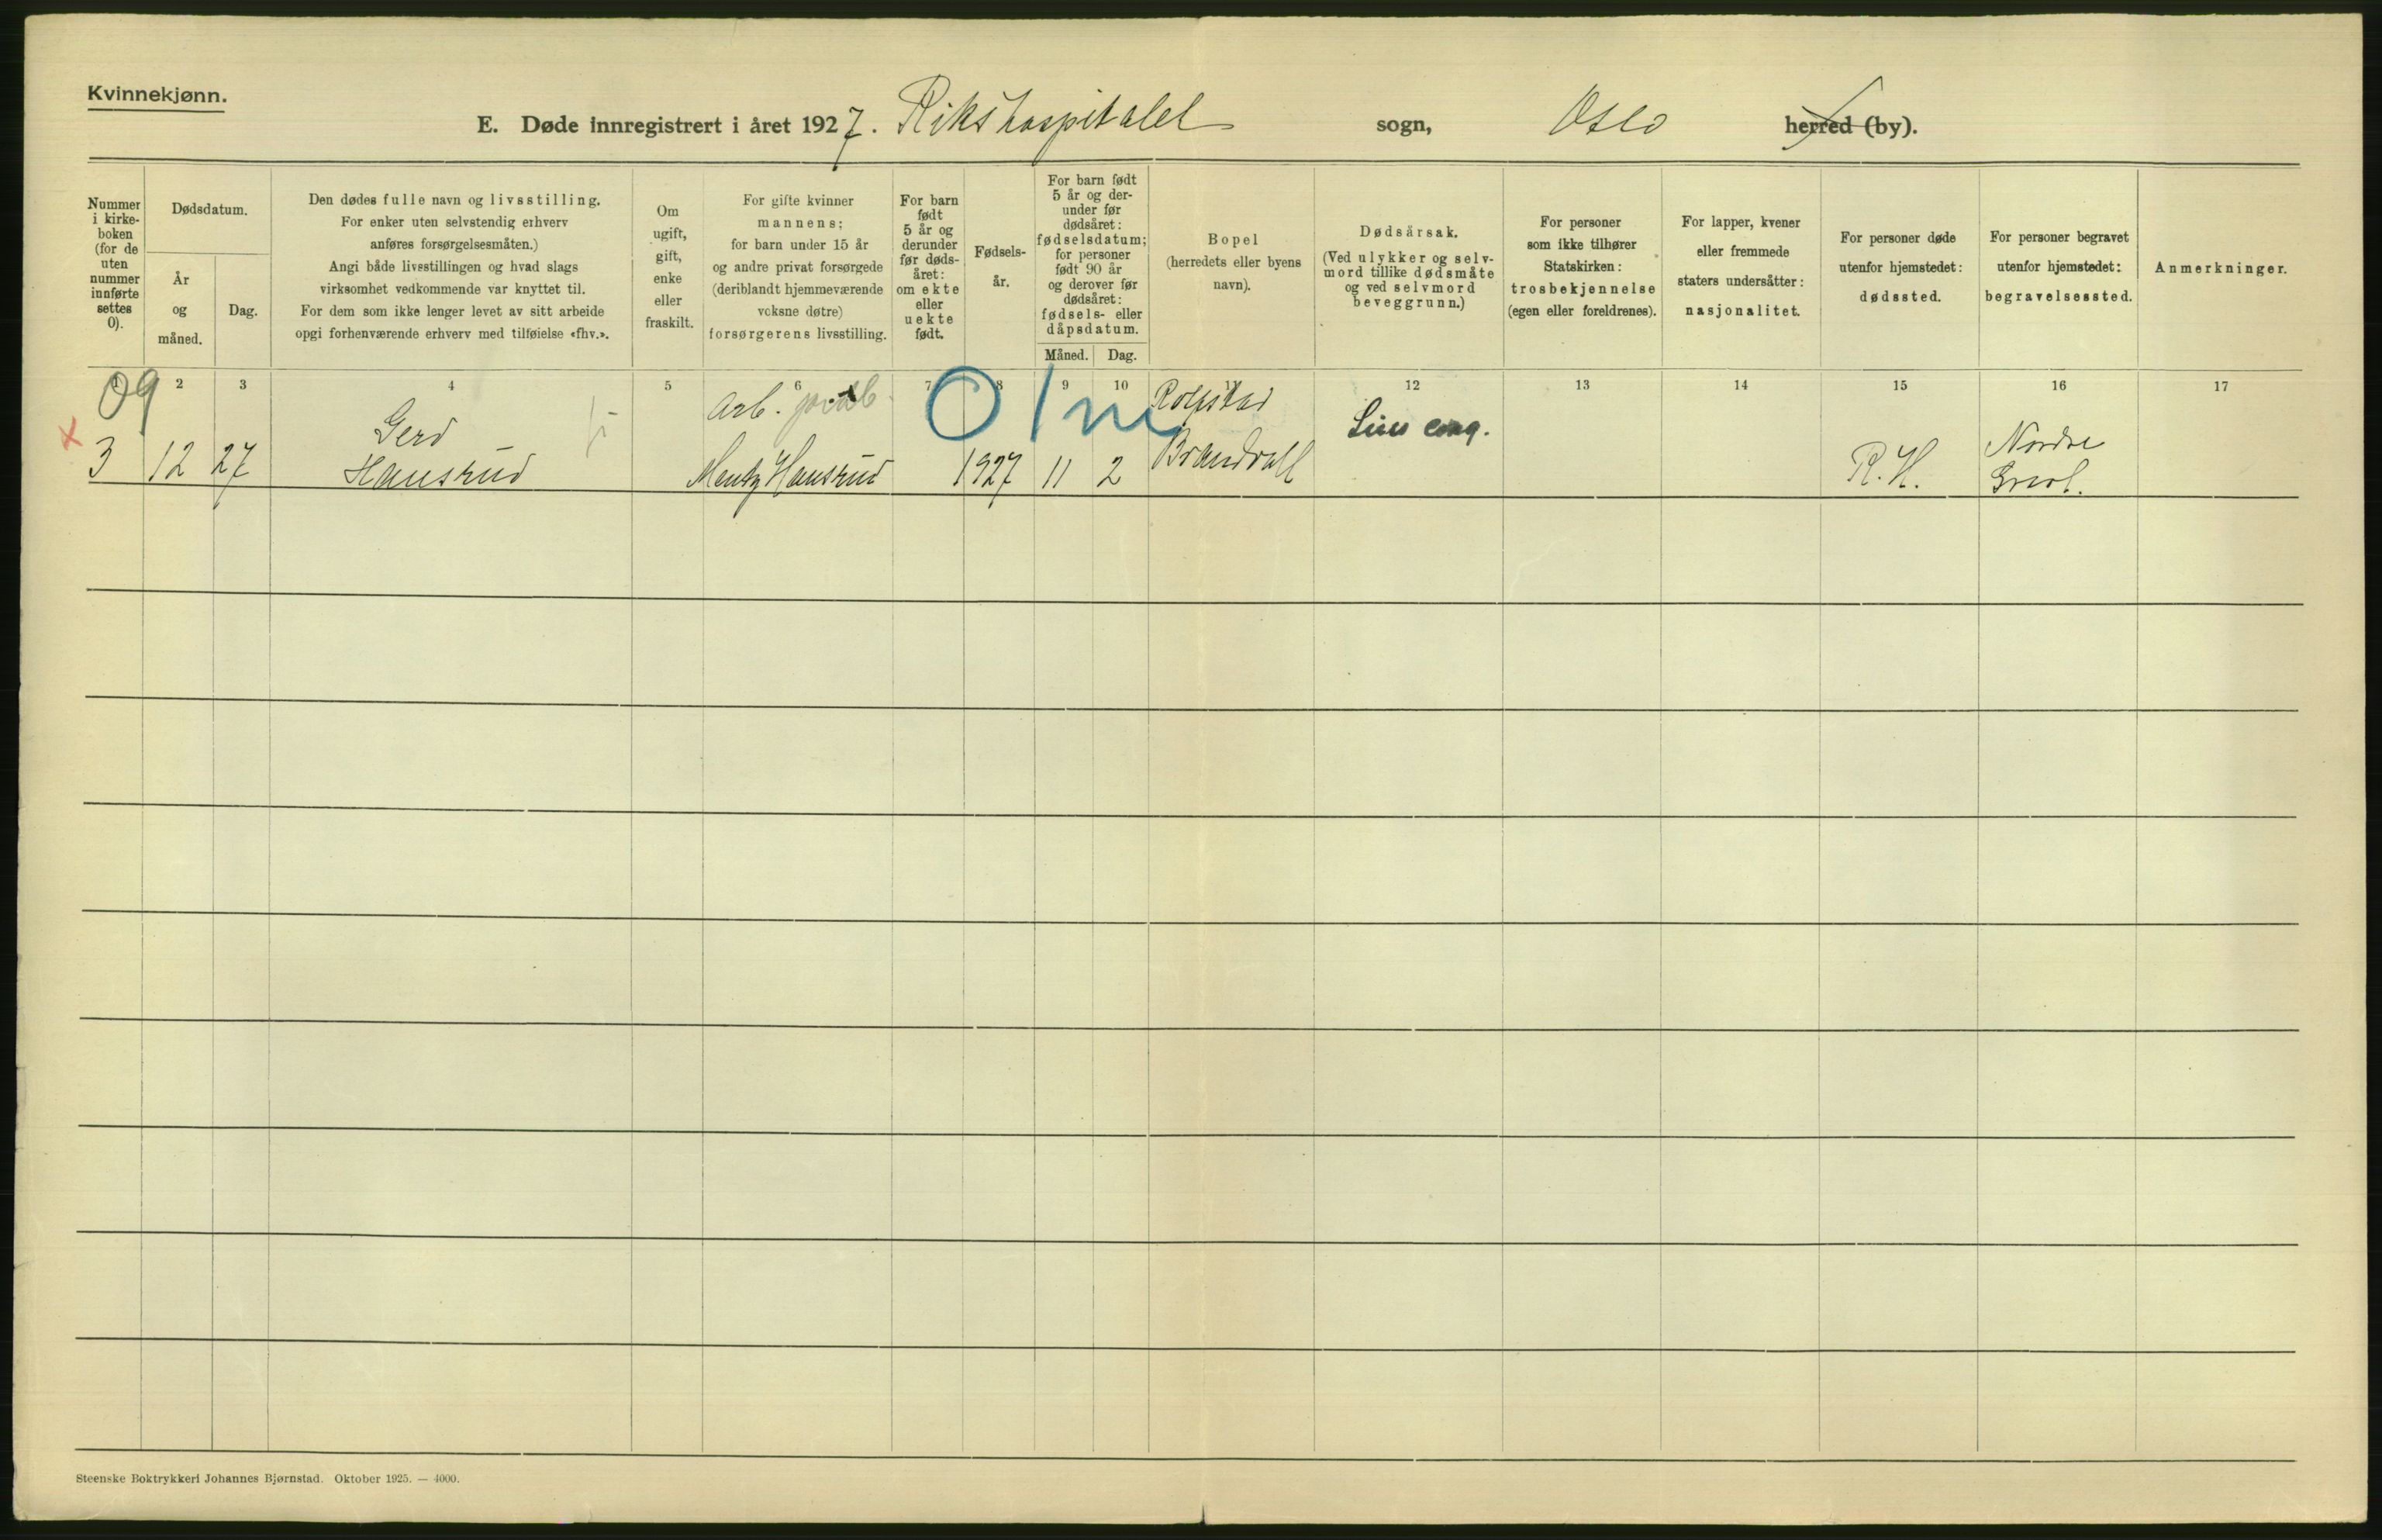 Kvinnekjønn.
E. Døde innregistrert i året 1927. Rikshospitalet sogn, Oslo herred (by).
Nummer
i kirke-
boken
(for de
uten
nummer
innførte
settes
0).
Dødsdatum.
År
og
måned.
Dag.
Den dødes fulle navn og livsstilling.
For enker uten selvstendig erhverv
anføres forsørgelsesmåten.)
Angi både livsstillingen og hvad slags
virksomhet vedkommende var knyttet til.
For dem som ikke lenger levet av sitt arbeide
opgi forhenværende erhverv med tilføielse «fhv.».
Om
ugift,
gift,
enke
eller
fraskilt.
For gifte kvinner
mannens;
for barn under 15 år
og andre privat forsørgede
(deriblandt hjemmeværende
voksne døtre)
forsørgerens livsstilling.
For barn
født
5 år og
derunder
før døds-
året:
om ekte
eller
uekte
født.
Fødsels-
år.
For barn født
5 år og der-
under før
dødsåret:
fødselsdatum;
for personer
født 90 år
og derover før
dødsåret:
fødsels- eller
dåpsdatum.
Måned. Dag.
Bopel
(herredets eller byens
navn).
Dødsårsak.
(Ved ulykker og selv-
mord tillike dødsmåte
og ved selvmord
beveggrunn.)
For personer
som ikke tilhører
Statskirken:
trosbekjennelse
(egen eller foreldrenes).
For lapper, kvener
eller fremmede
staters undersåtter:
nasjonalitet.
For personer døde
utenfor hjemstedet:
dødssted.
For personer begravet
utenfor hjemstedet:
begravelsessted.
Anmerkninger.
1 2 3 4 5 6 7 8 9 10 11 12 13 14 15 16 17
09 Gerd Arb. 01 Rolfstad Nordre
3 12 27 Hansrud Mentz Hansrud 1927 11 2 Brandvall R.H.
Steenske Boktrykkeri Johannes Bjørnstad. Oktober 1925. — 4000.